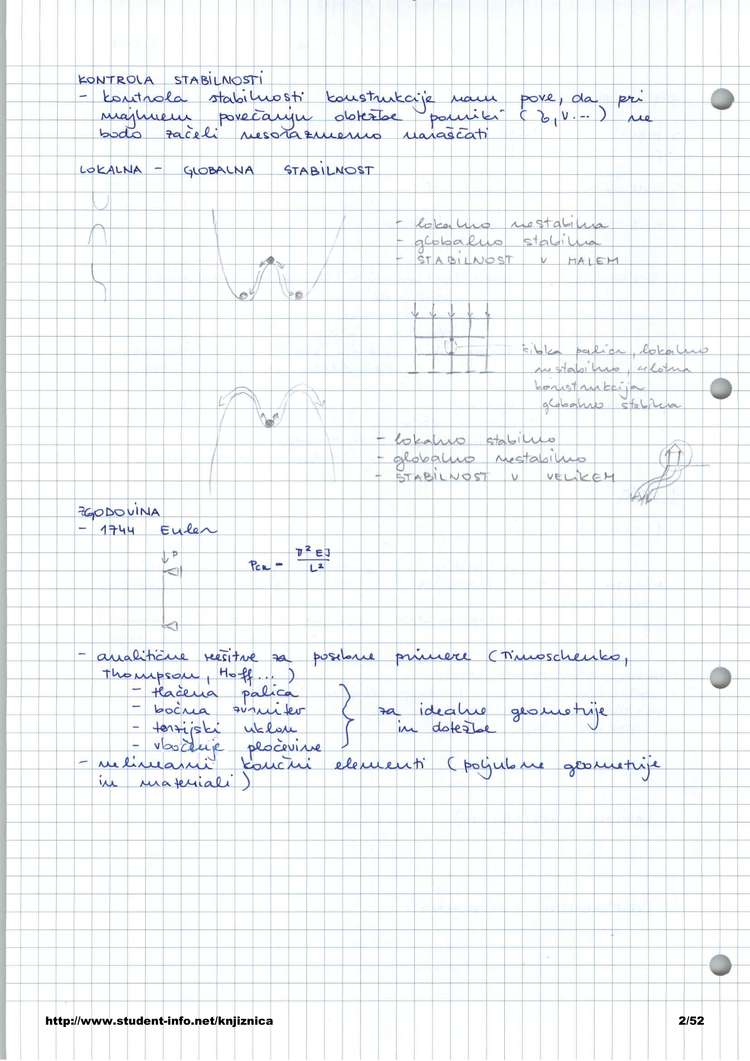 KONTROLA STABILNOSTI
- kontrola stabilnosti konstrukcije nam pove, da pri
majhnem povečanju obtežbe pomiki ( , v ...) ne
bodo začeli nesorazmerno naraščati
LOKALNA - GLOBALNA STABILNOST
- lokalno nestabilna
- globalno stabilna
- STABILNOST V MALEM
šibka palica, lokalno
nestabilna, celotna
konstrukcija
globalno stabilna
- lokalno stabilno
- globalno nestabilno
- STABILNOST V VELIKEM
ZGODOVINA
- 1744 Euler
P
PCR = π² EJ / L²
- analitične rešitve za posebne primere (Timoschenko,
Thompson, Hoff ...)
- tlačena palica
- bočna zvrnitev
- torzijski uklon
- vbočenje pločevine
za idealne geometrije
in obtežbe
- nelinearni končni elementi (poljubne geometrije
in materiali)
http://www.student-info.net/knjiznica
2/52